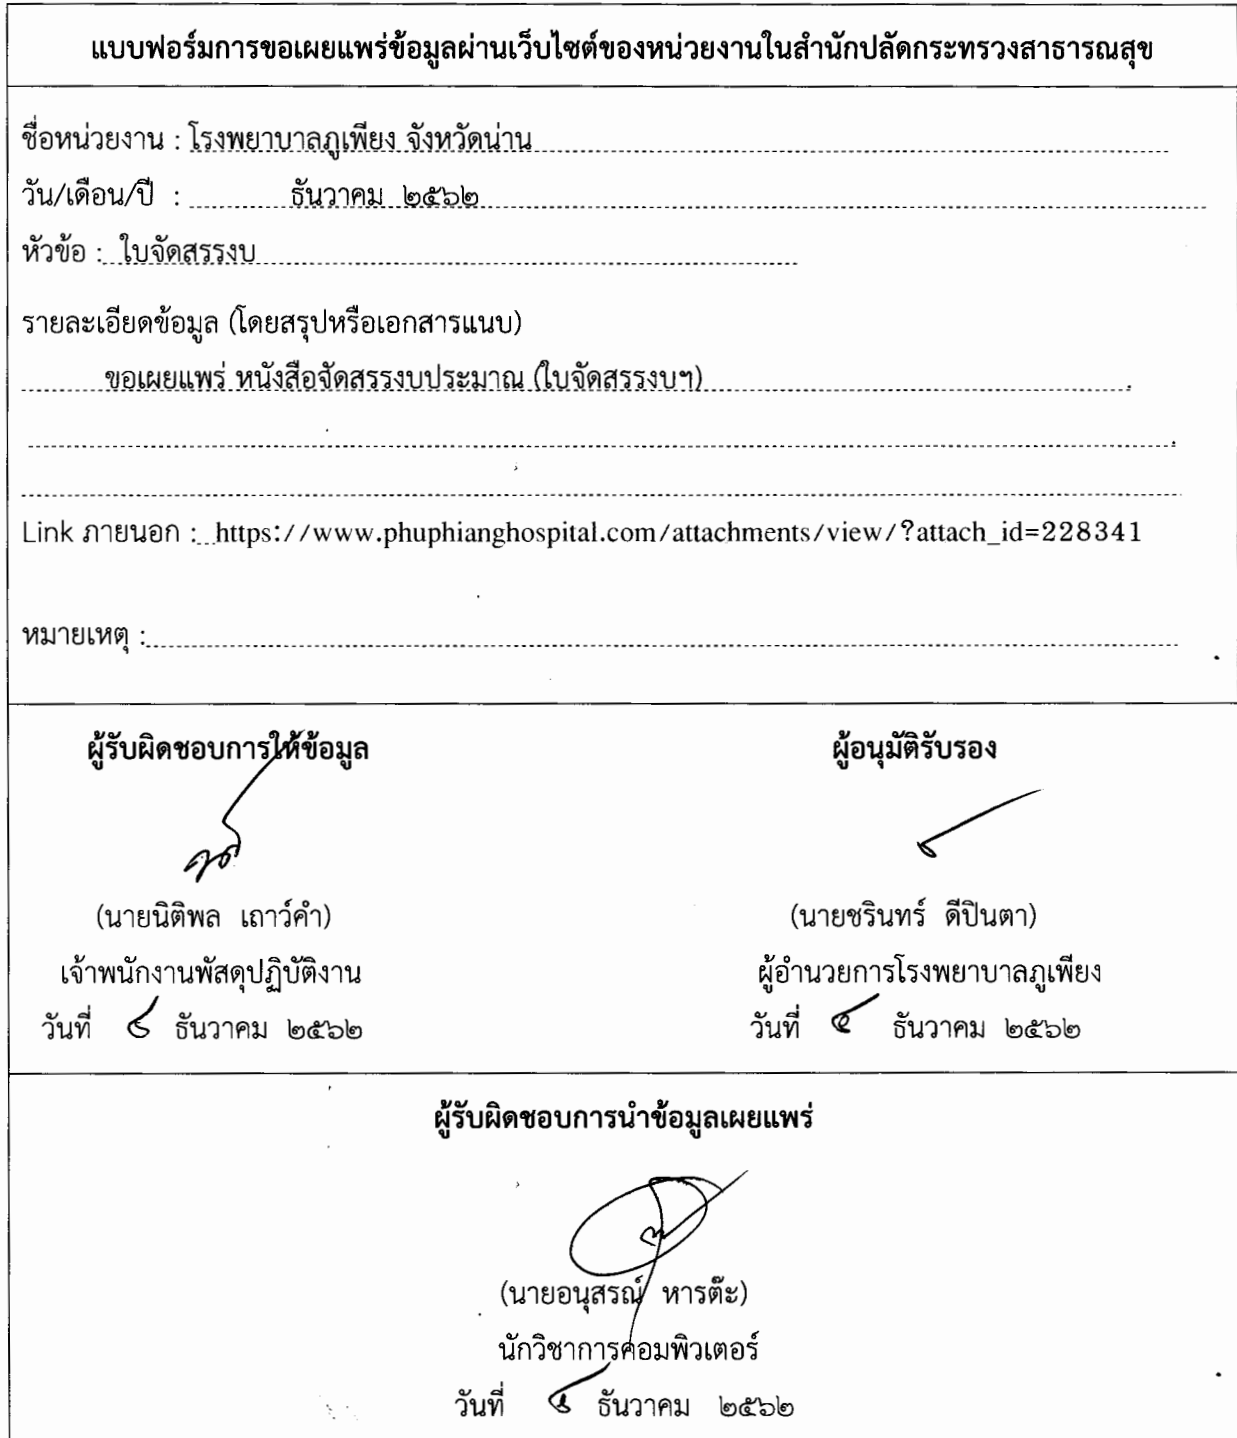 แบบฟอร์มการขอเผยแพร่ข้อมูลผ่านเว็บไซต์ของหน่วยงานในสำนักปลัดกระทรวงสาธารณสุข
ชื่อหน่วยงาน : โรงพยาบาลภูเพียง จังหวัดน่าน
วัน/เดือน/ปี : ธันวาคม ๒๕๖๒
หัวข้อ : ใบจัดสรรงบ
รายละเอียดข้อมูล (โดยสรุปหรือเอกสารแนบ)
ขอเผยแพร่ หนังสือจัดสรรงบประมาณ (ใบจัดสรรงบฯ)
Link ภายนอก : https://www.phuphianghospital.com/attachments/view/?attach_id=228341
หมายเหตุ :
ผู้รับผิดชอบการให้ข้อมูล ผู้อนุมัติรับรอง
(นายนิติพล เถาว์คำ) (นายชรินทร์ ดีปินตา)
เจ้าพนักงานพัสดุปฏิบัติงาน ผู้อำนวยการโรงพยาบาลภูเพียง
วันที่ ธันวาคม ๒๕๖๒ วันที่ ธันวาคม ๒๕๖๒
ผู้รับผิดชอบการนำข้อมูลเผยแพร่
(นายอนุสรณ์ หารต๊ะ)
นักวิชาการคอมพิวเตอร์
วันที่ ธันวาคม ๒๕๖๒